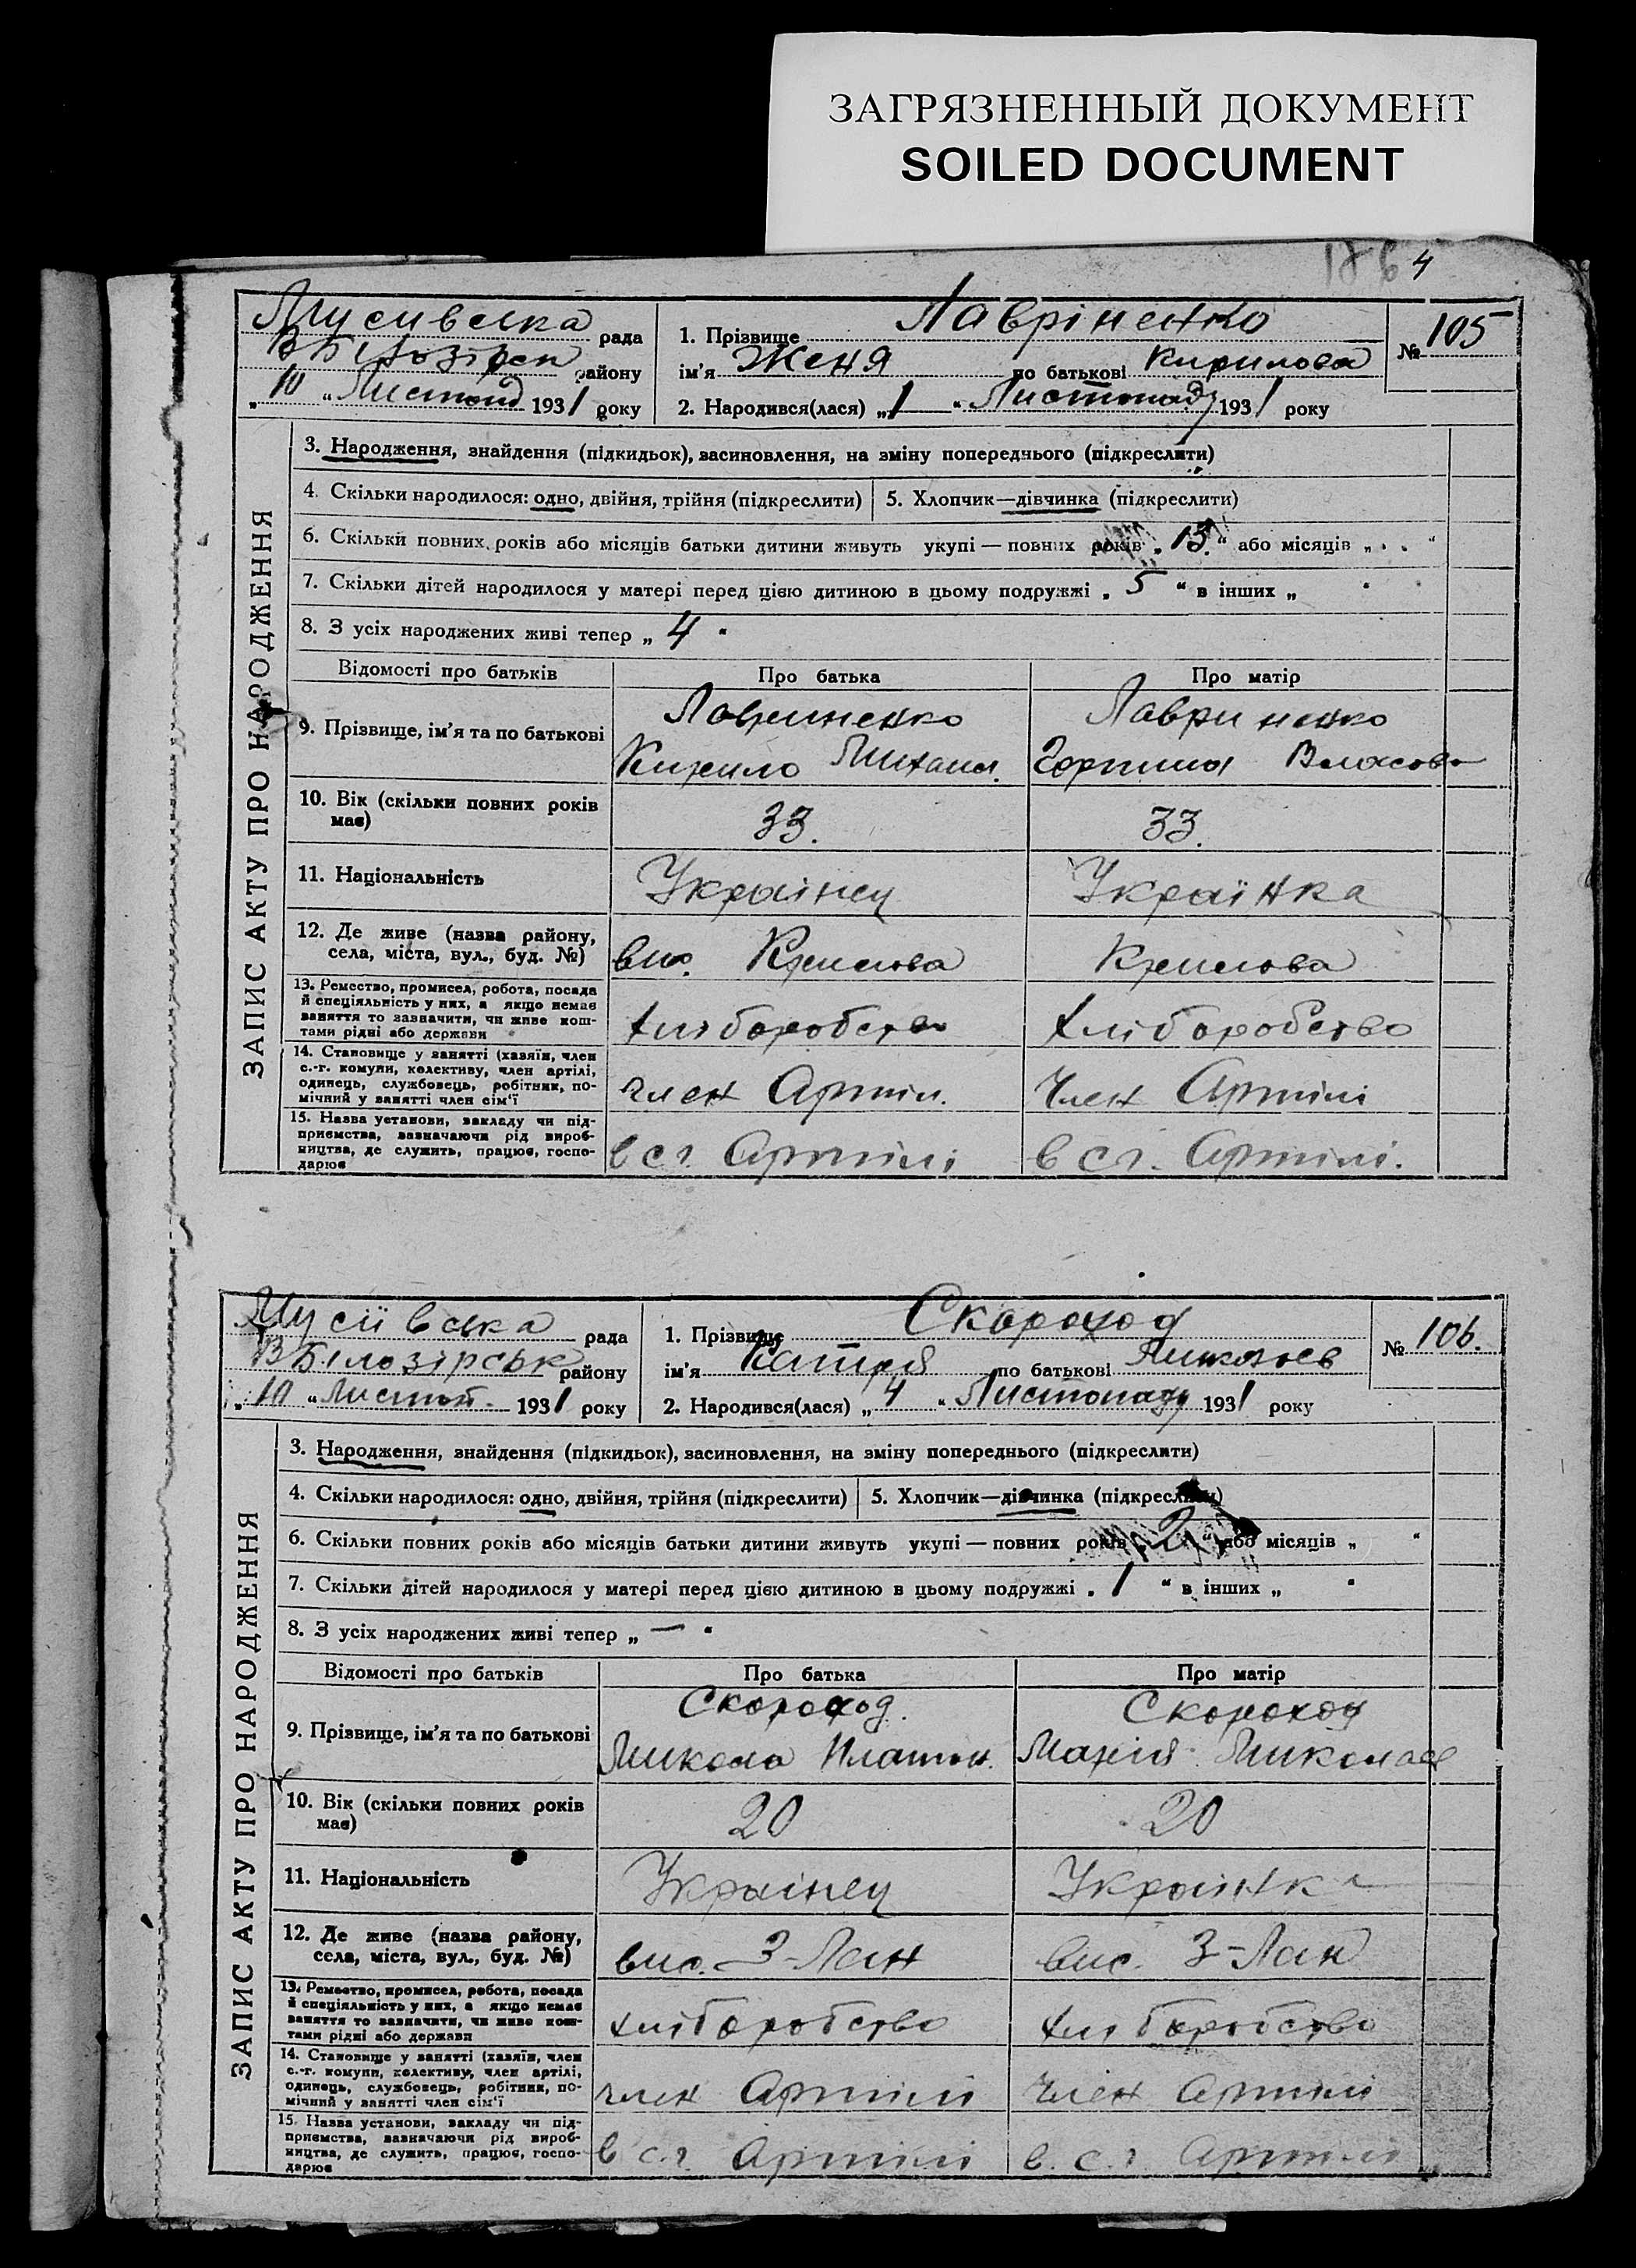 ЗАГРЯЗНЕННЫЙ ДОКУМЕНТ
SOILED DOCUMENT
4
Мусивська рада
ВБілозірск району
„10“ Листопад 1931 року
1. Прізвище Лавріненко
ім'я Женя по батькові Кирилова
2. Народився(лася) „1“ Листопад 1931 року
№ 105
ЗАПИС АКТУ ПРО НАРОДЖЕННЯ
3. Народження, знайдення (підкидьок), засиновлення, на зміну попереднього (підкреслити)
4. Скільки народилося: одно, двійня, трійня (підкреслити) 5. Хлопчик—дівчинка (підкреслити)
6. Скільки повних років або місяців батьки дитини живуть укупі — повних років „13“ або місяців „ “
7. Скільки дітей народилося у матері перед цією дитиною в цьому подружжі „5“ в інших „ “
8. З усіх народжених живі тепер „4“
Відомості про батьків Про батька Про матір
9. Прізвище, ім'я та по батькові
Лавриненко Лавриненко
Кирило Михайл. Горпина Власова
10. Вік (скільки повних років має) 33. 33.
11. Національність Українец Українка
12. Де живе (назва району, села, міста, вул., буд. №) вис. Крилова Крилова
13. Ремество, промисел, робота, посада
й спеціяльність у них, а якщо немає
заняття то зазначити, чи живе кош-
тами рідні або держави
хліборобство хліборобство
14. Становище у занятті (хазяїн, член
с.-г. комуни, колективу, член артілі,
одинець, службовець, робітник, по-
мічний у занятті член сім'ї
член Артіл. Член Артілі
15. Назва установи, закладу чи під-
приємства, зазначаючи рід вироб-
ництва, де служить, працює, госпо-
дарює
в с г. Артілі в с г. Артілі.
Мусіївська рада
ВБілозірськ району
„10“ Листоп. 1931 року
1. Прізвище Скороход
ім'я Катря по батькові
2. Народився(лася) „4“ Листопад 1931 року
№ 106.
ЗАПИС АКТУ ПРО НАРОДЖЕННЯ
3. Народження, знайдення (підкидьок), засиновлення, на зміну попереднього (підкреслити)
4. Скільки народилося: одно, двійня, трійня (підкреслити) 5. Хлопчик—дівчинка (підкреслити)
6. Скільки повних років або місяців батьки дитини живуть укупі — повних років „2“ або місяців „ “
7. Скільки дітей народилося у матері перед цією дитиною в цьому подружжі „1“ в інших „ “
8. З усіх народжених живі тепер „—“
Відомості про батьків Про батька Про матір
9. Прізвище, ім'я та по батькові
Скороход. Скороход
Микола Платон. Марія Миколаєв
10. Вік (скільки повних років має) 20 20
11. Національність Українец Українка
12. Де живе (назва району, села, міста, вул., буд. №) вис. 3-Лан вис. 3-Лан
13. Ремество, промисел, робота, посада
й спеціяльність у них, а якщо немає
заняття то зазначити, чи живе кош-
тами рідні або держави
хліборобство хліборобство
14. Становище у занятті (хазяїн, член
с.-г. комуни, колективу, член артілі,
одинець, службовець, робітник, по-
мічний у занятті член сім'ї
член Артілі Член Артілі
15. Назва установи, закладу чи під-
приємства, зазначаючи рід вироб-
ництва, де служить, працює, госпо-
дарює
в с.г. Артілі в. с. г Артілі